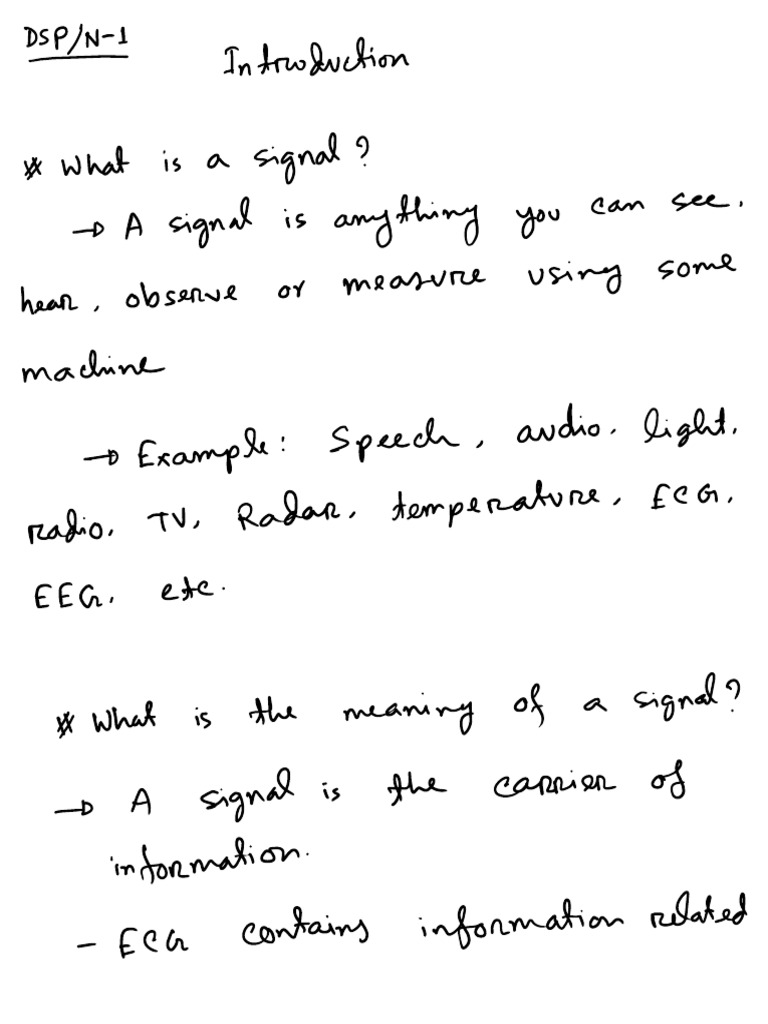 DSP/N-1
Introduction
* What is a signal?
→ A signal is anything you can see,
hear, observe or measure using some
machine
→ Example: Speech, audio, light,
radio, TV, Radar, temperature, ECG,
EEG, etc.
* What is the meaning of a signal?
→ A signal is the carrier of
information.
- ECG contains information related